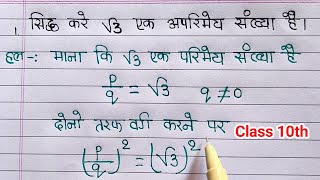 1. सिद्ध करे √3 एक अपरिमेय संख्या है।
हल -: माना कि √3 एक परिमेय संख्या है
p/q = √3 q ≠ 0
दोनो तरफ वर्ग करने पर
Class 10th
(p/q)² = (√3)²